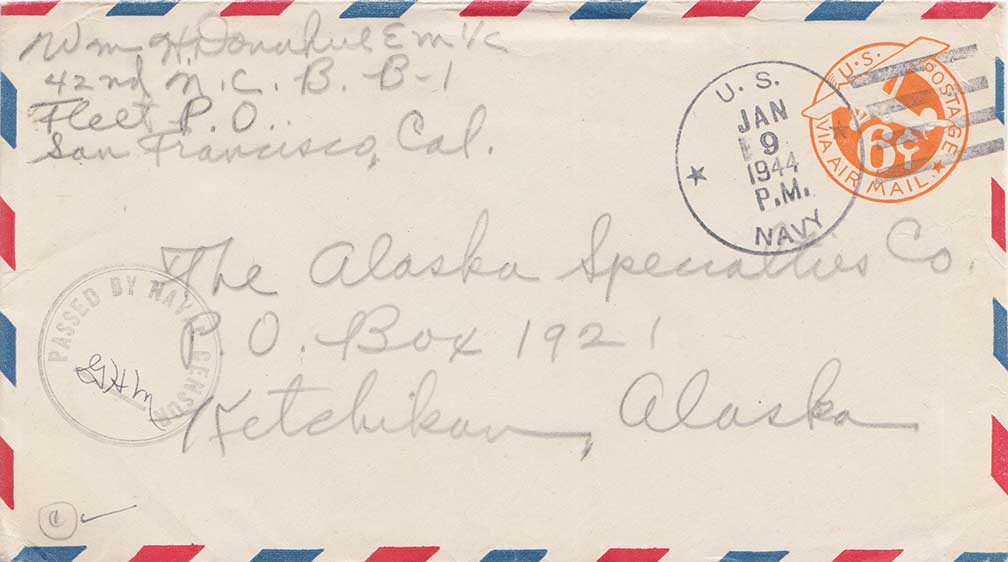 Wm H Donahue E m 1/c
42nd N. C. B. B-1
Fleet P. O.
San Francisco, Cal.
U. S.
JAN
9
1944
P.M.
NAVY
U.S. POSTAGE
6¢
VIA AIR MAIL
The Alaska Specialties Co.
P. O. Box 1921
Ketchikan, Alaska
PASSED BY NAVAL CENSOR
GHM
1